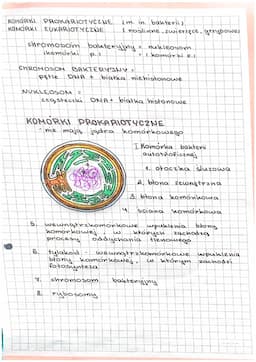 KOMÓRKI PROKARIOTYCZNE (m.in. bakterii)
KOMÓRKI EUKARIOTYCZNE ( roślinne, zwierzęce, grzybowe)
chromosom bakteryjny ≠ nukleosom
(komórki p.) (komórki e.)
CHROMOSOM BAKTERYJNY =
pętle DNA + białka niehistonowe
NUKLEOSOM =
cząsteczki DNA + białka histonowe
KOMÓRKI PROKARIOTYCZNE
- nie mają jądra komórkowego
I. Komórka bakterii
autotroficznej
1. otoczka śluzowa
2. błona zewnętrzna
3. błona komórkowa
4. ściana komórkowa
5. wewnątrzkomórkowe wpuklenia błony
komórkowej, w których zachodzą
procesy oddychania tlenowego
6. tylakoid - wewnątrzkomórkowe wpuklenie
błony komórkowej, w którym zachodzi
fotosynteza
7. chromosom bakteryjny
8. rybosomy